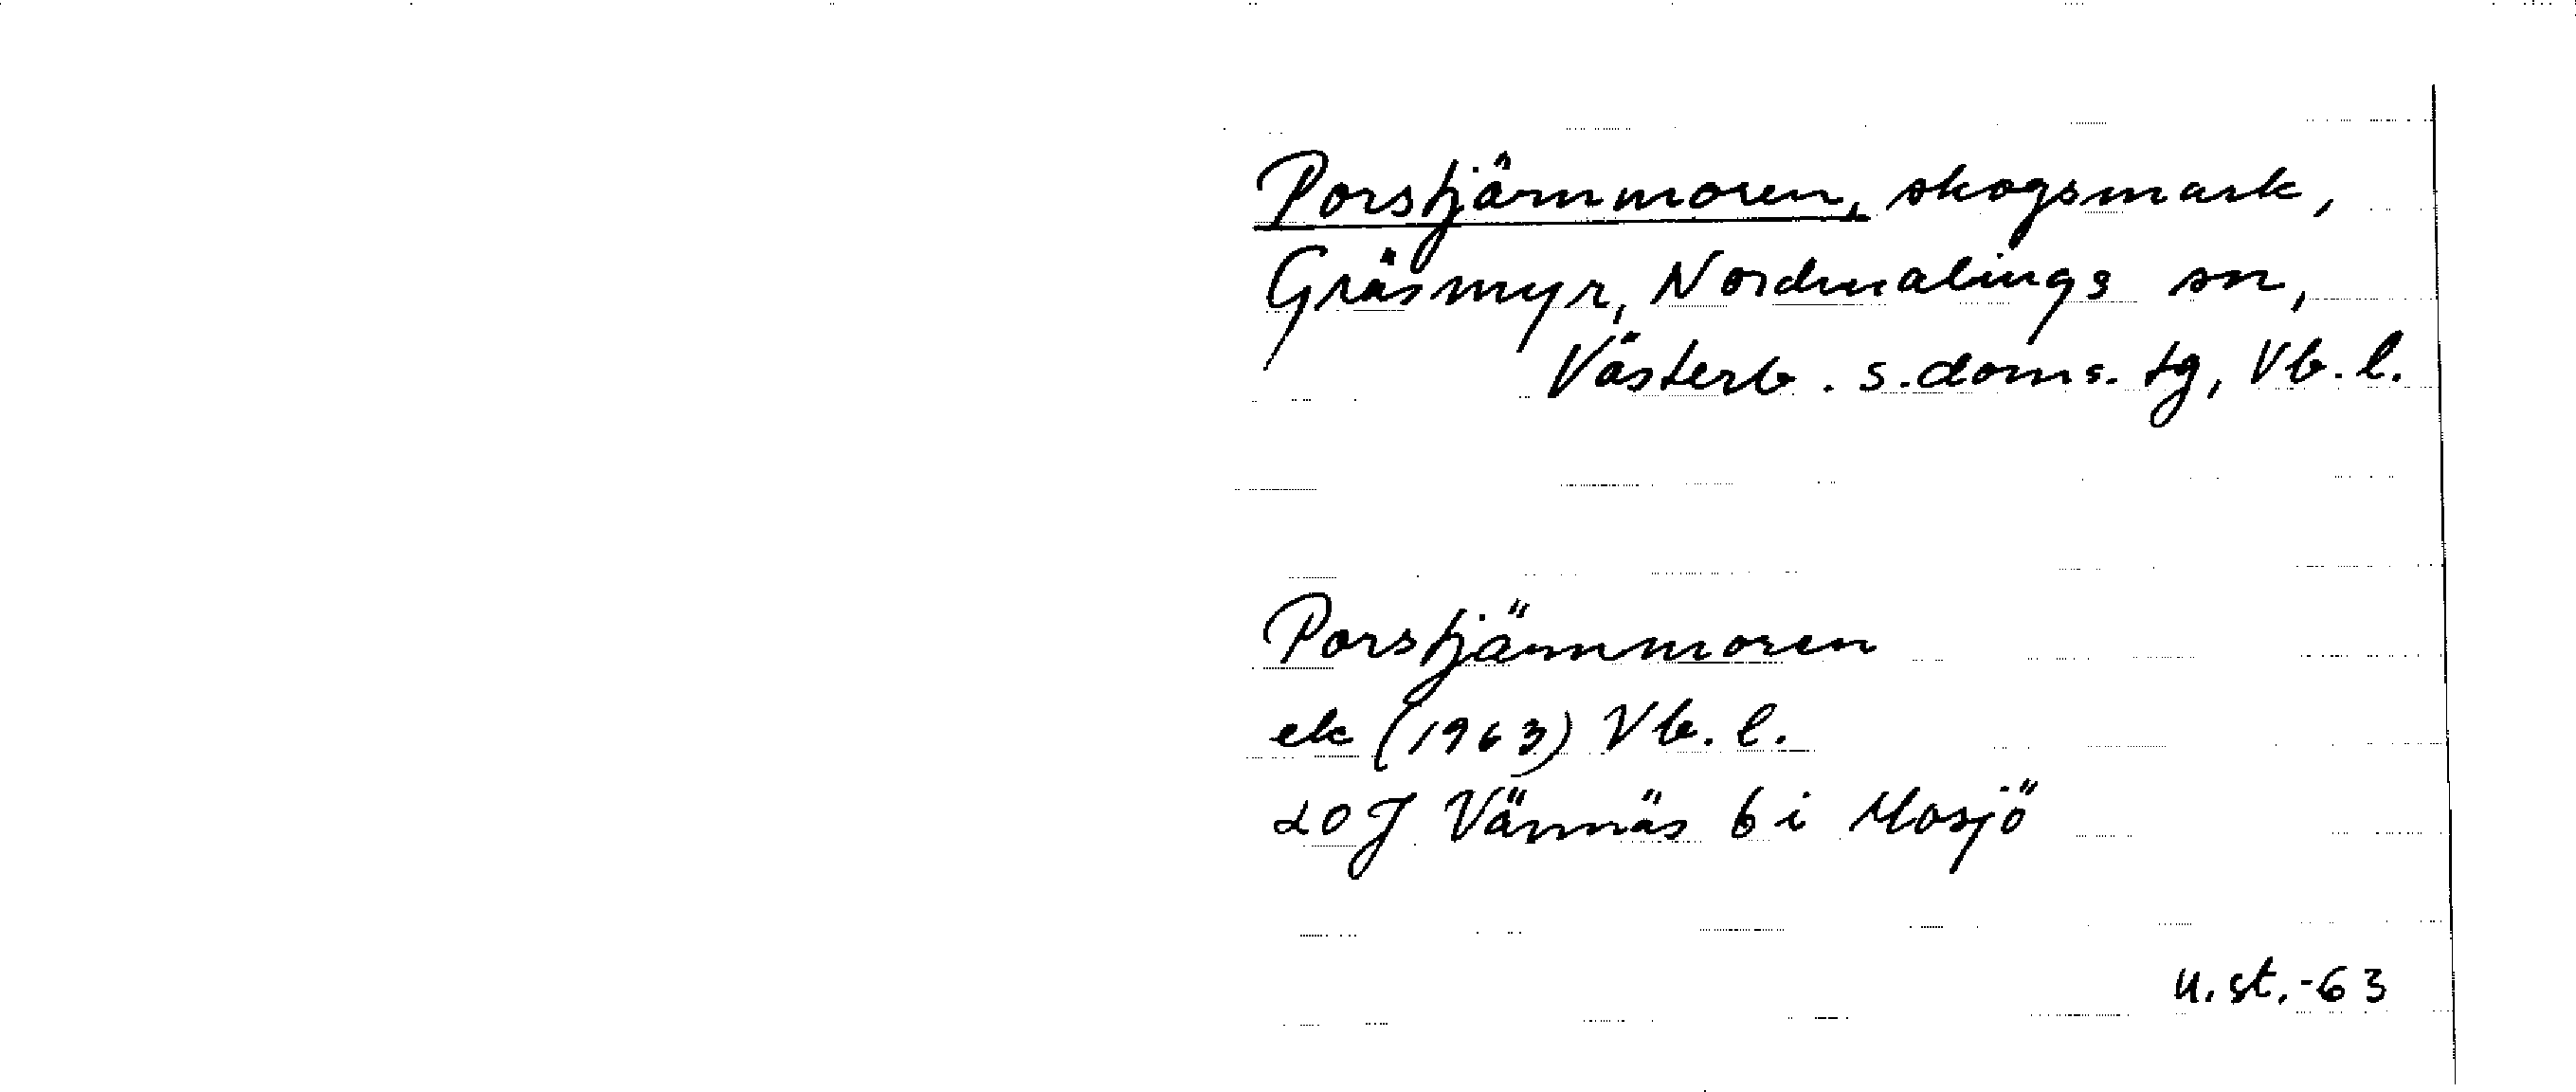 Porstjärnmoren, skogsmark,
Gräsmyr, Nordmalings sn,
Västerb. s. doms. tg, Vb. l.
Porstjärnmoren
ek (1963) Vb. l.
20 J Vännäs 6 i Mosjö
u. st. -63